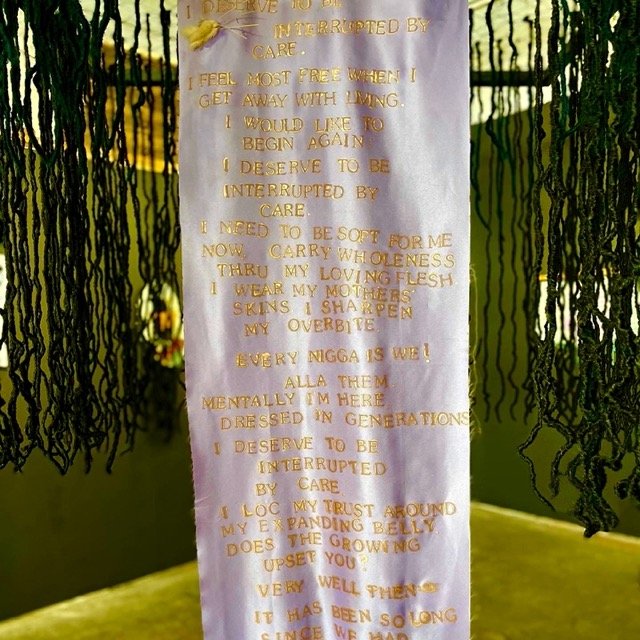 I DESERVE TO BE
INTERRUPTED BY
CARE.
I FEEL MOST FREE WHEN I
GET AWAY WITH LIVING.
I WOULD LIKE TO
BEGIN AGAIN
I DESERVE TO BE
INTERRUPTED BY
CARE.
I NEED TO BE SOFT FOR ME
NOW. CARRY WHOLENESS
THRU MY LOVING FLESH
I WEAR MY MOTHERS'
SKINS I SHARPEN
MY OVERBITE.
EVERY NIGGA IS WE!
ALLA THEM
MENTALLY I'M HERE
DRESSED IN GENERATIONS
I DESERVE TO BE
INTERRUPTED
BY CARE.
I LOC MY TRUST AROUND
MY EXPANDING BELLY.
DOES THE GROWING
UPSET YOU?
VERY WELL THEN
IT HAS BEEN SO LONG
SINCE WE HAD